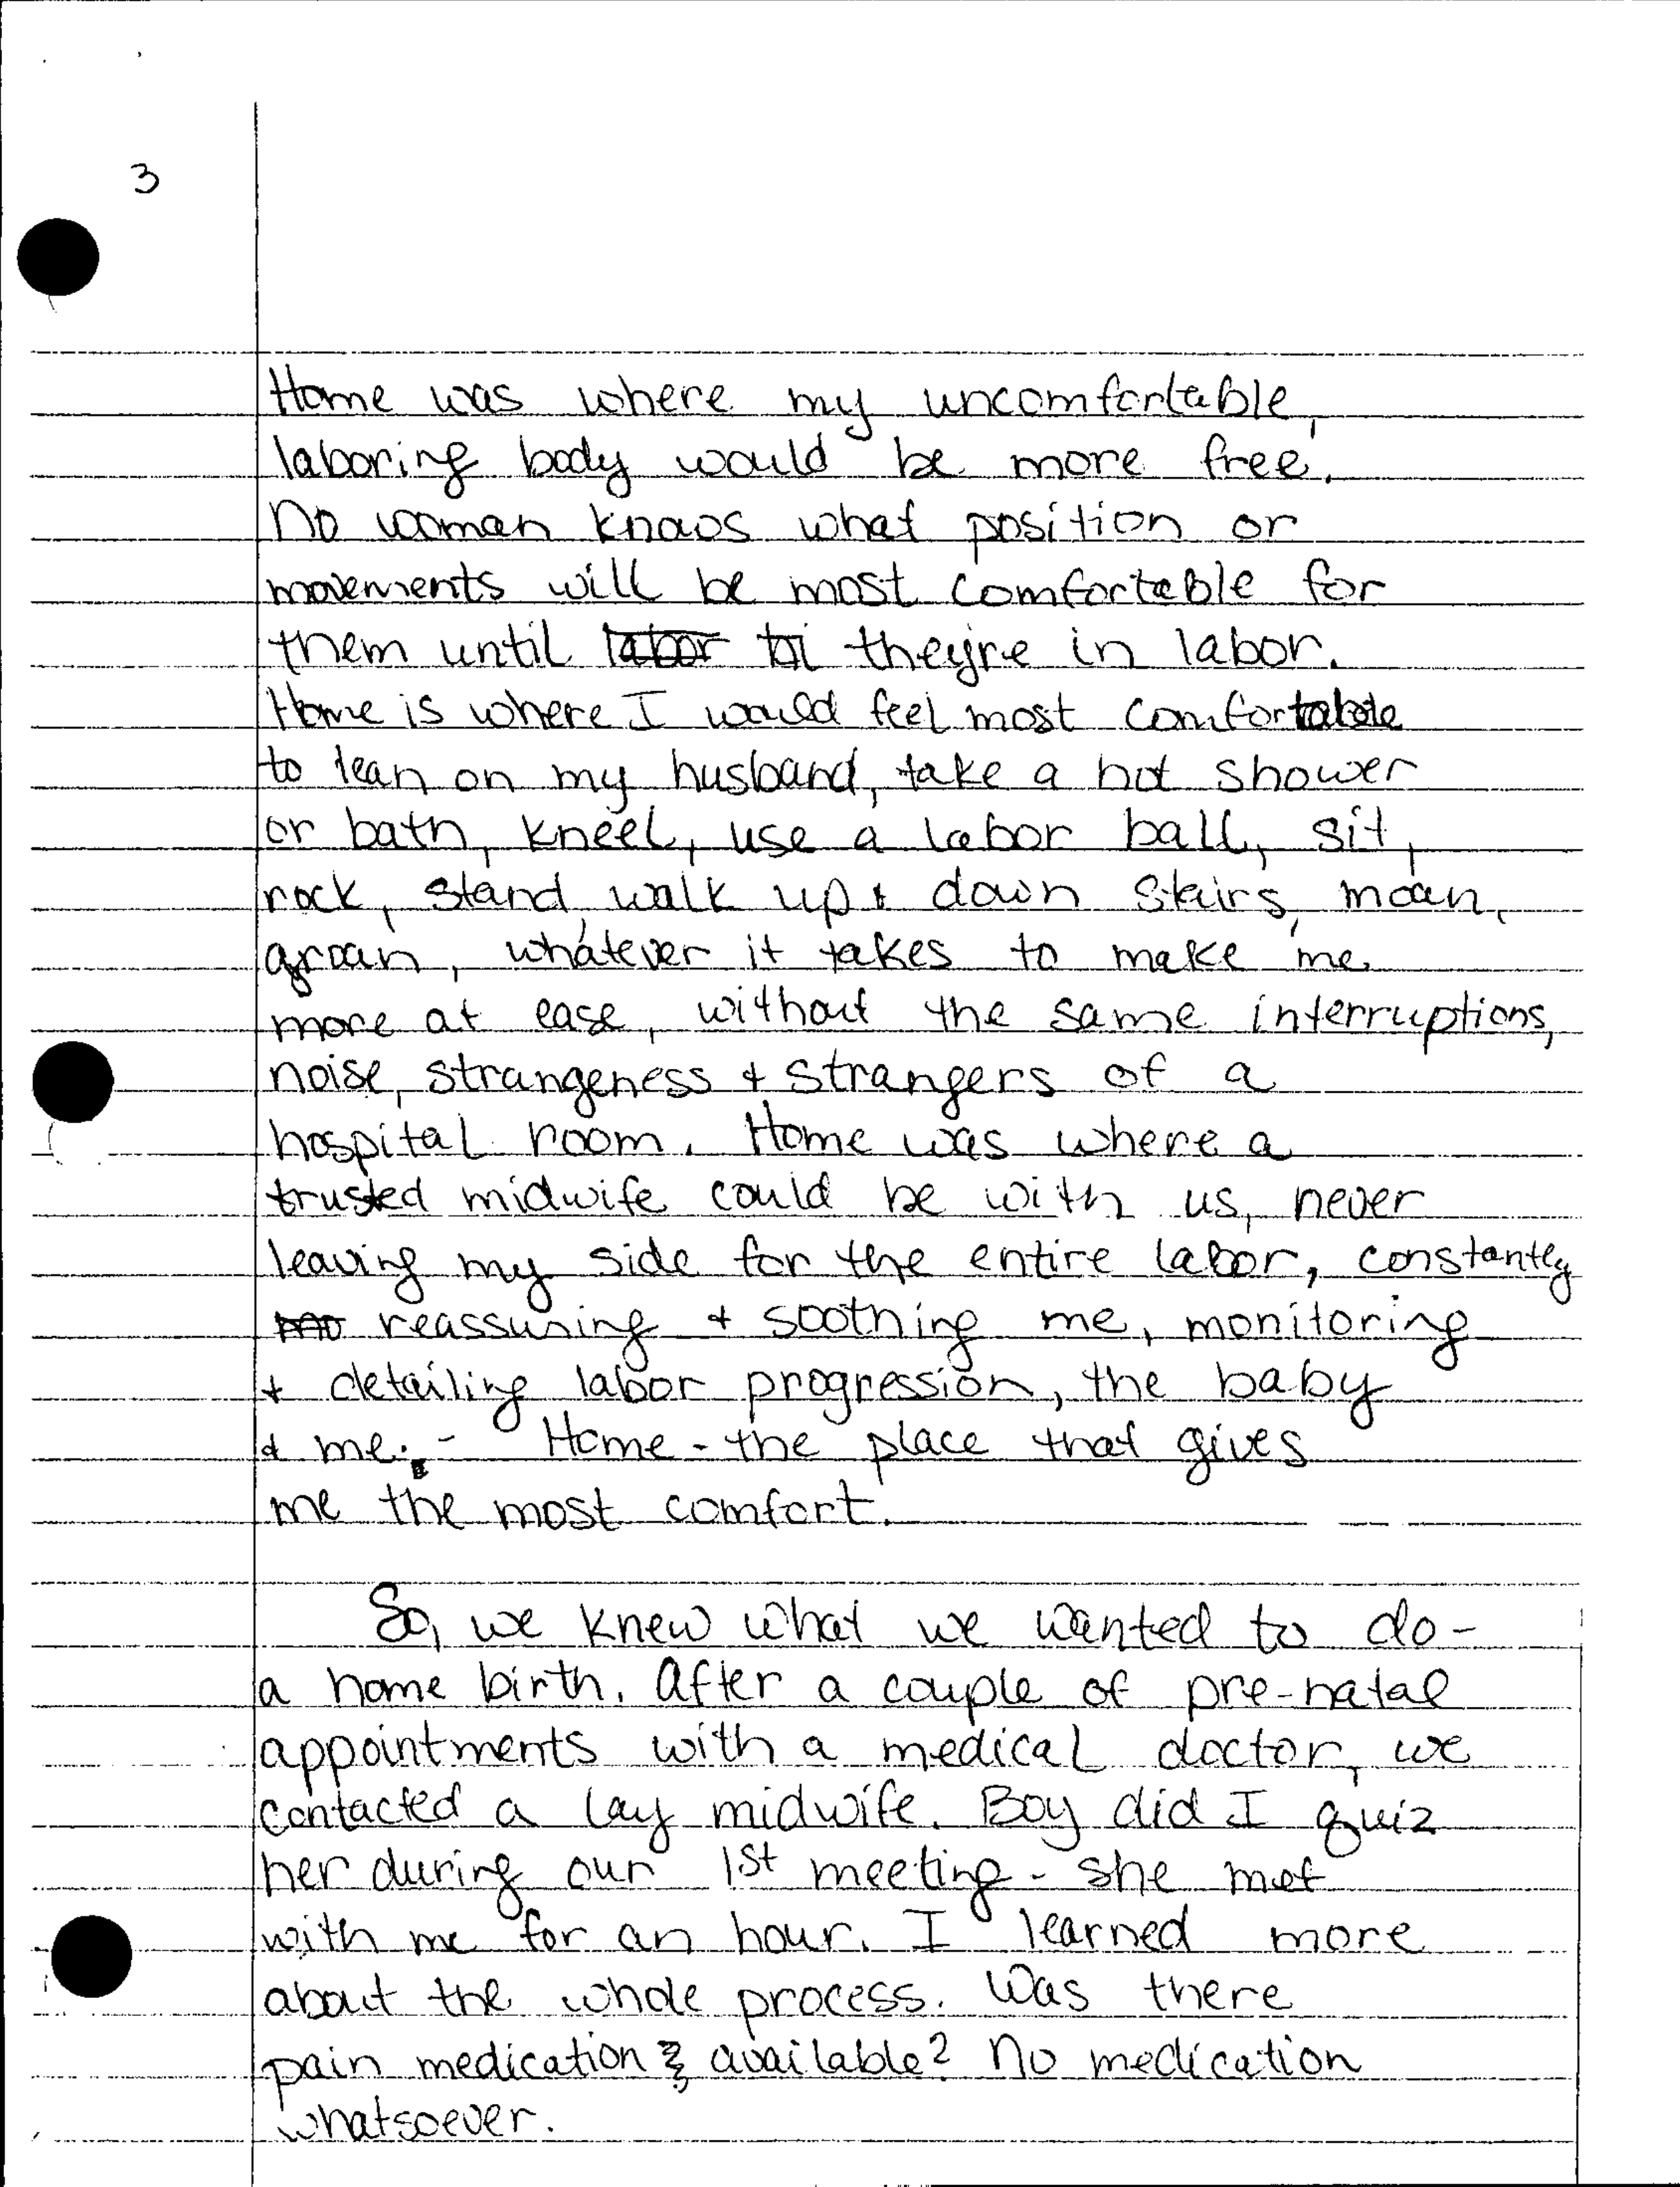 3
Home was where my uncomfortable,
laboring body would be more free.
No woman knows what position or
movements will be most comfortable for
them until labor they're in labor.
Home is where I would feel most comfortable
to lean on my husband, take a hot shower
or bath, kneel, use a labor ball, sit,
rock, stand, walk up & down stairs, moan,
groan, whatever it takes to make me
more at ease, without the same interruptions,
noise, strangeness & strangers of a
hospital room. Home was where a
trusted midwife could be with us, never
leaving my side for the entire labor, constantly
reassuring & soothing me, monitoring
& detailing labor progression, the baby
& me. - Home - the place that gives
me the most comfort.
So, we knew what we wanted to do -
a home birth. After a couple of pre-natal
appointments with a medical doctor, we
contacted a lay midwife. Boy did I quiz
her during our 1st meeting - she met
with me for an hour. I learned more
about the whole process. Was there
pain medication available? No medication
whatsoever.